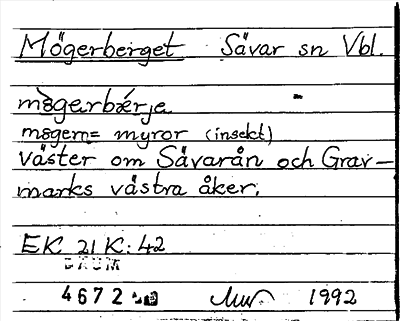 Mögerberget Sävar sn Vbl.
mögerbǽrje
mögern= myror (insekt)
väster om Sävarån och Grav-
marks västra åker.
EK 21 K: 42
DAUM
4672
1992